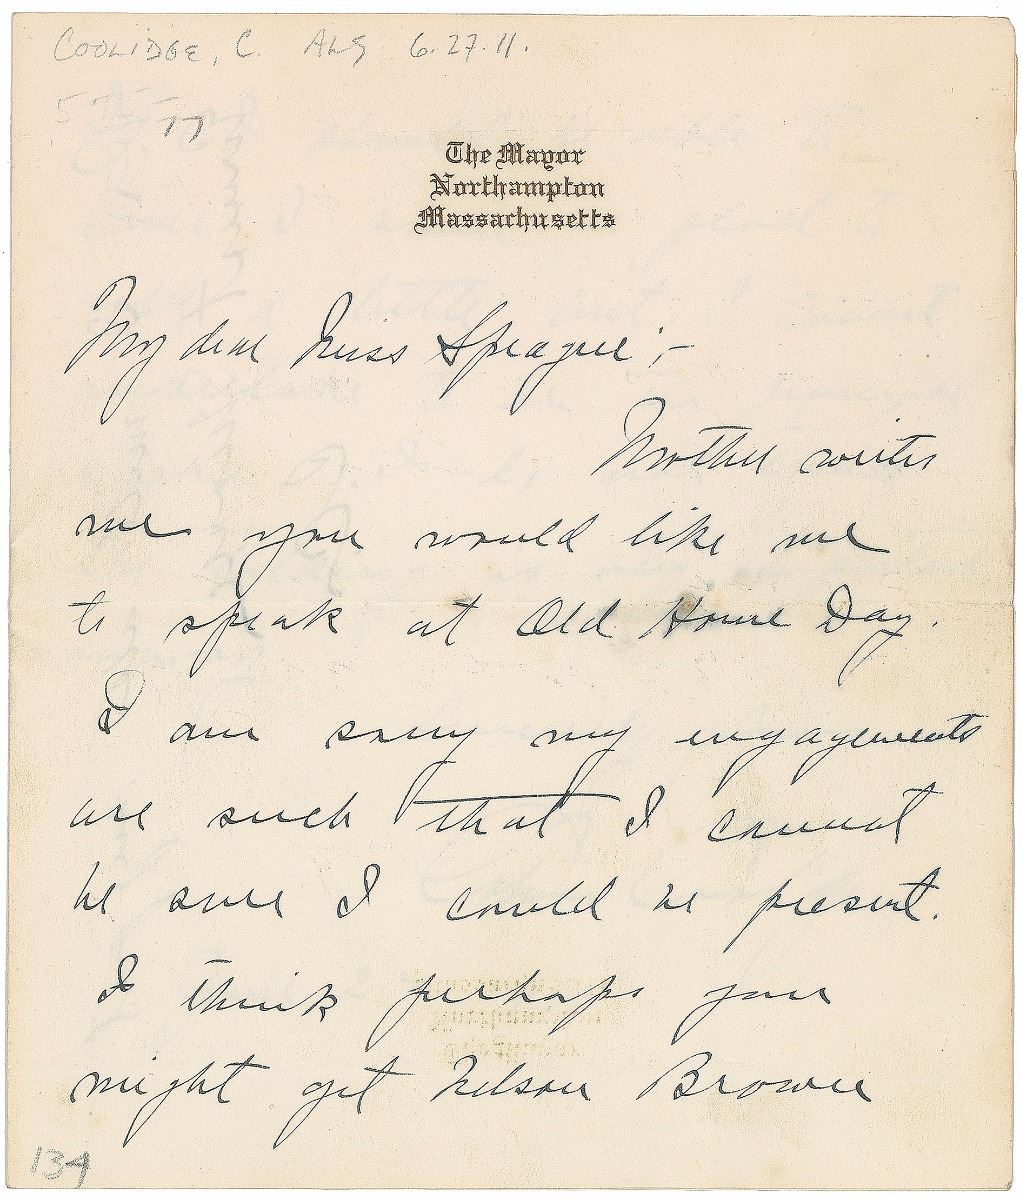 COOLIDGE, C. ALS 6.27.11.
77
The Mayor
Northampton
Massachusetts
My dear Miss Sprague;-
Mother writes
me you would like me
to speak at Old Home Day.
I am sorry my engagements
are such that I cannot
be sure I could be present.
I think perhaps you
might get Nelson Browne
134